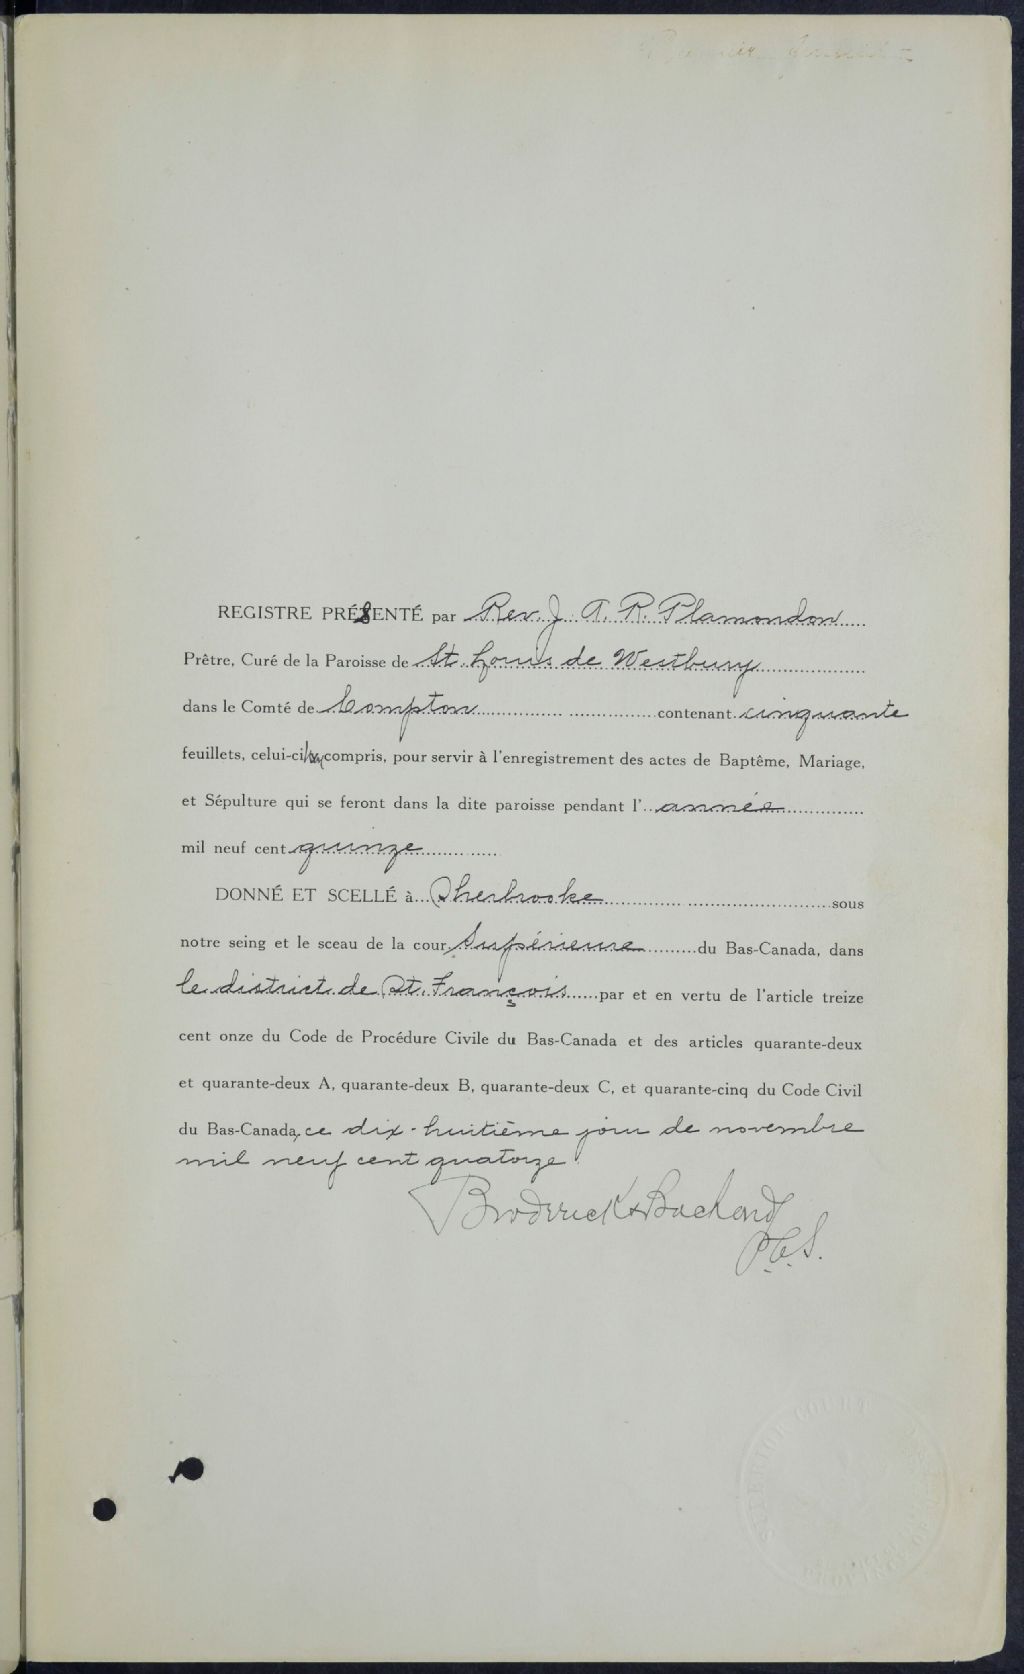 Premier feuillet
REGISTRE PRÉSENTÉ par Rev. J. A. R. Plamondon
Prêtre, Curé de la Paroisse de St. Louis de Westbury
dans le Comté de Compton contenant cinquante
feuillets, celui-ci y compris, pour servir à l'enregistrement des actes de Baptême, Mariage,
et Sépulture qui se feront dans la dite paroisse pendant l'année
mil neuf cent quinze
DONNÉ ET SCELLÉ à Sherbrooke sous
notre seing et le sceau de la cour Supérieure du Bas-Canada, dans
le district de St. François par et en vertu de l'article treize
cent onze du Code de Procédure Civile du Bas-Canada et des articles quarante-deux
et quarante-deux A, quarante-deux B, quarante-deux C, et quarante-cinq du Code Civil
du Bas-Canada, ce dix-huitième jour de novembre
mil neuf cent quatorze.
Broderick & Bachand
P.C.S.
SUPERIOR COURT
PROVINCE OF